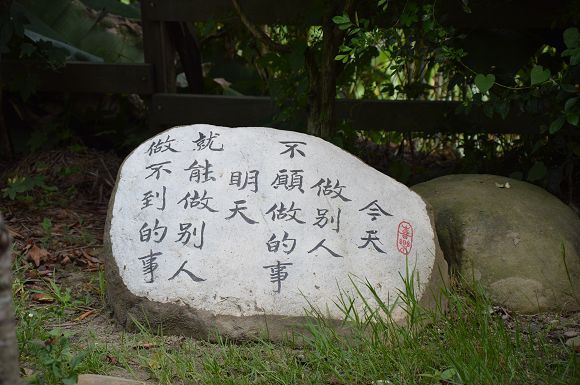 今天
做別人
不願做的事
明天
就能做別人
做不到的事